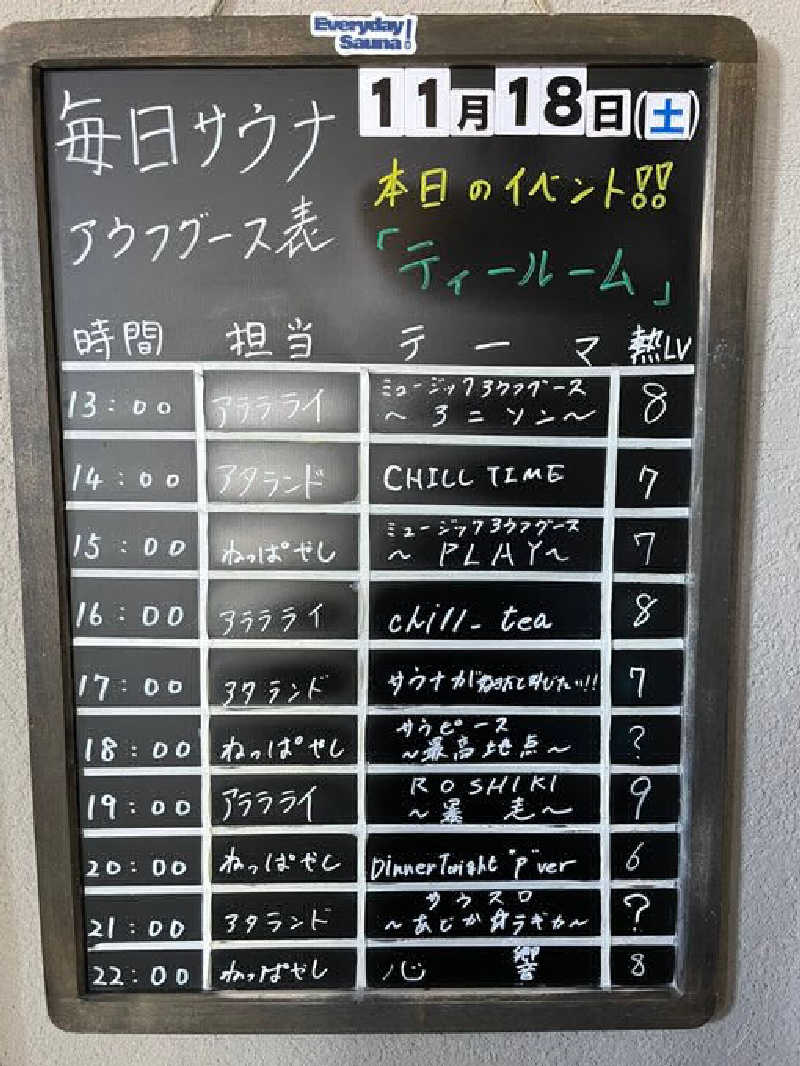 Everyday
Sauna!
毎日サウナ
11月18日(土)
アウフグース表
本日のイベント!!
「ティールーム」
時間 担当 テーマ 熱LV
13:00 アラライ ミュージックアウフグース ～ヨニソン～ 8
14:00 アタランド CHILL TIME 7
15:00 ねっぱやし ミュージックアウフグース ～PLAY～ 7
16:00 アラライ chill_tea 8
17:00 アタランド サウナが好きだと叫びたい!! 7
18:00 ねっぱやし サウピース ～最高地点～ ?
19:00 アラライ ROSHIKI ～暴走～ 9
20:00 ねっぱやし Dinner Twight "P" ver 6
21:00 アタランド サウスロ ?
22:00 ねっぱやし 心響 8